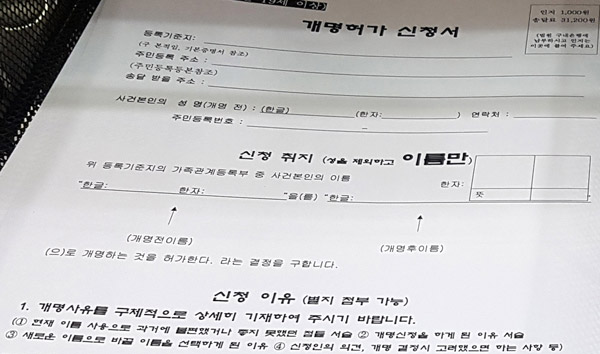 (19세 이상)
개명허가 신청서
인지 1,000원
송달료 31,200원
(법원 구내은행에
납부하시고 인지는
이곳에 붙여 주세요)
등록기준지:
(구 본적임, 기본증명서 참조)
주민등록 주소 :
(주민등록등본참조)
송달 받을 주소 :
사건본인의 성 명(개명 전) : (한글) (한자: ) 연락처 :
주민등록번호 : -
신청 취지 (성을 제외하고 이름만)
위 등록기준지의 가족관계등록부 중 사건본인의 이름
한자:
뜻
"한글: 한자: "을(를) "한글:
(개명전이름) (개명후이름)
(으)로 개명하는 것을 허가한다. 라는 결정을 구합니다.
신청 이유 (별지 첨부 가능)
1. 개명사유를 구체적으로 상세히 기재하여 주시기 바랍니다.
(① 현재 이름 사용으로 과거에 불편했거나 좋지 못했던 점들 서술 ② 개명신청을 하게 된 이유 서술
③ 새로운 이름으로 바꿀 이름을 선택하게 된 이유 ④ 신청인의 의견, 개명 결정시 고려했으면 하는 사항 등)